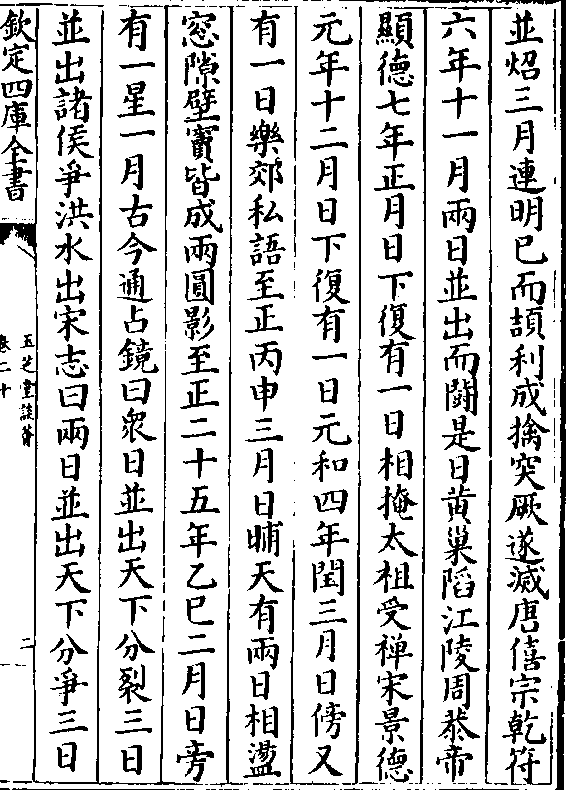 並炤三月連明已而頡利成擒突厥遂滅唐僖宗乾符
六年十一月兩日並出而鬪是日黄巢陷江陵周恭帝
顯德七年正月日下復有一日相掩太祖受禪宋景德
元年十二月日下復有一日元和四年閏三月日傍又
有一日樂郊私語至正丙申三月日晡天有兩日相盪
窓隙壁竇皆成兩圓影至正二十五年乙巳二月日旁
有一星一月古今通占鏡曰衆日並出天下分裂三日
並出諸侯爭洪水出宋志曰兩日並出天下分爭三日
欽定四庫全書
玉芝堂談薈
卷二十
二